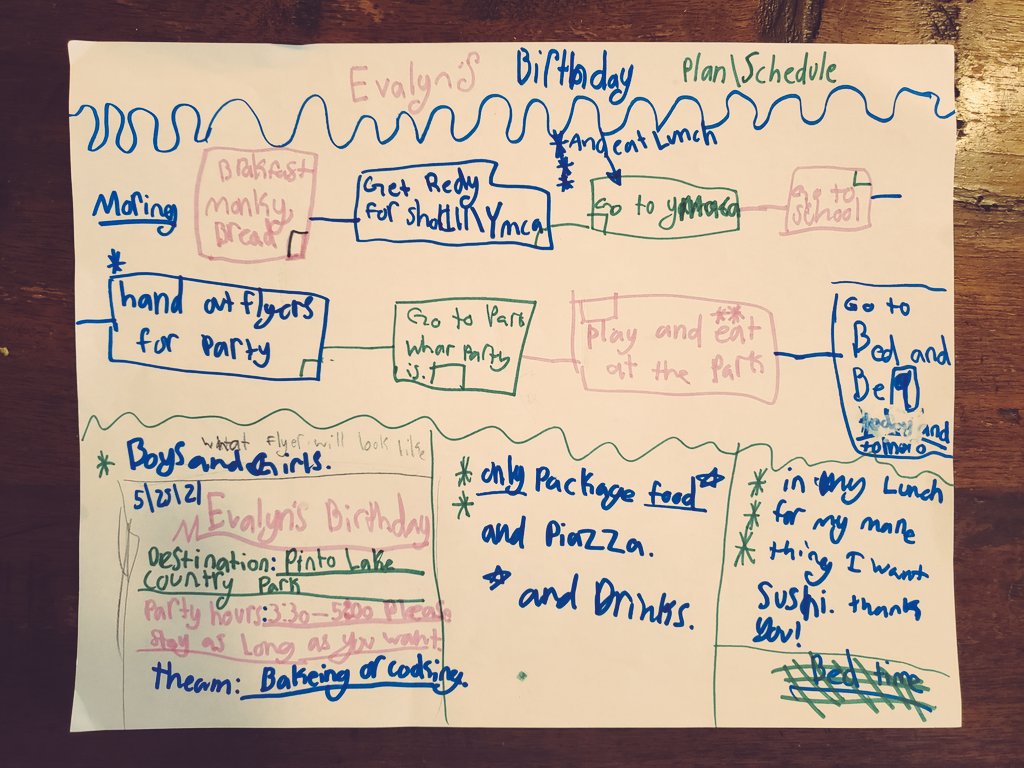 Evalyn's Birthday Plan\Schedule
*And eat Lunch
Moring
Brakfast
monky,
Bread
Get Redy
for sholl\Ymca
Go to
Go to
school
*
hand out flyers
for Party
Go to Park
whar Party
is.
**
play and eat
at the Park
Go to
Bed and
Be
and
tomaro
what Flyer will look like
* Boys and Girls.
5/25/21
Evalyn's Birthday
Destination: Pinto Lake
country Park
Party hours: 3:30-5:00 Please
stay as Long as you want
theam: Bakeing or cooking.
* only Package food
* and Piazza.
and Drinks.
* in my Lunch
* for my mane
* thing I want
Sushi. thank
you!
Bed time